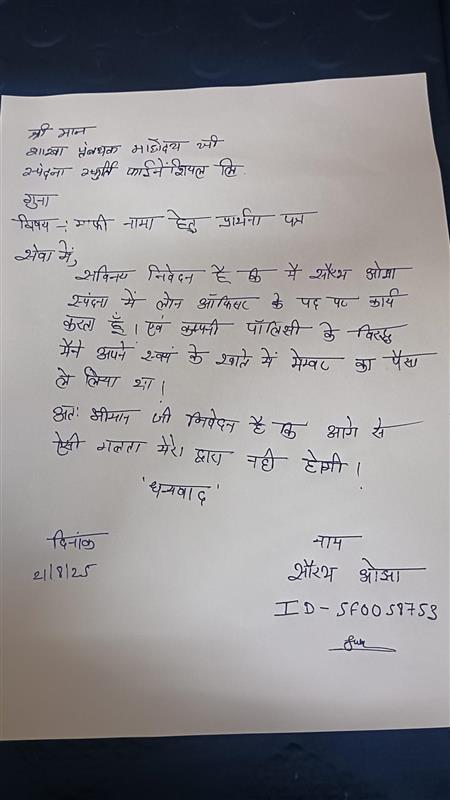 श्री मान
शाखा प्रंबधक महोदय जी
स्पंदना स्फुर्ति फाईनेंशियल लि.
गुना
विषय :- माफी नामा हेतु प्रार्थना पत्र
सेवा में,
सविनय निवेदन है कि मैं सौरभ ओझा
स्पंदना में लोन ऑफिसर के पद पर कार्य
करता हूँ। एवं कम्पनी पॉलिसी के विरुद्ध
मैने अपने स्वयं के खाते में मेम्बर का पैसा
ले लिया था।
अतः श्रीमान जी निवेदन है कि आगे से
ऐसी गलता मेरे द्वारा नही होगी।
'धन्यवाद'
दिनांक
21/8/25
नाम
सौरभ ओझा
ID- SF0058753